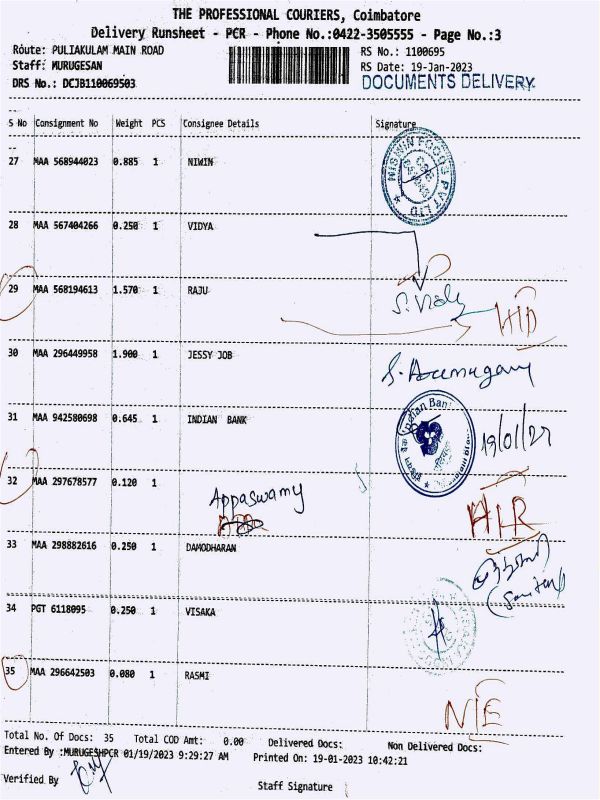 THE PROFESSIONAL COURIERS, Coimbatore
Delivery Runsheet - PCR - Phone No.:0422-3505555 - Page No.:3
Route: PULIAKULAM MAIN ROAD RS No.: 1100695
Staff: MURUGESAN RS Date: 19-Jan-2023
DRS No.: DCJB110069503 DOCUMENTS DELIVERY
S No Consignment No Weight PCS Consignee Details Signature
27 MAA 568944023 0.885 1 NIWIN
28 MAA 567404266 0.250 1 VIDYA
29 MAA 568194613 1.570 1 RAJU
30 MAA 296449958 1.900 1 JESSY JOB
31 MAA 942580698 0.645 1 INDIAN BANK
32 MAA 297678577 0.120 1 Appaswamy
33 MAA 298882616 0.250 1 DAMODHARAN
34 PGT 6118095 0.250 1 VISAKA
35 MAA 296642503 0.080 1 RASMI
Total No. Of Docs: 35 Total COD Amt: 0.00 Delivered Docs: Non Delivered Docs:
Entered By :MURUGESHPCR 01/19/2023 9:29:27 AM Printed On: 19-01-2023 10:42:21
Verified By
Staff Signature